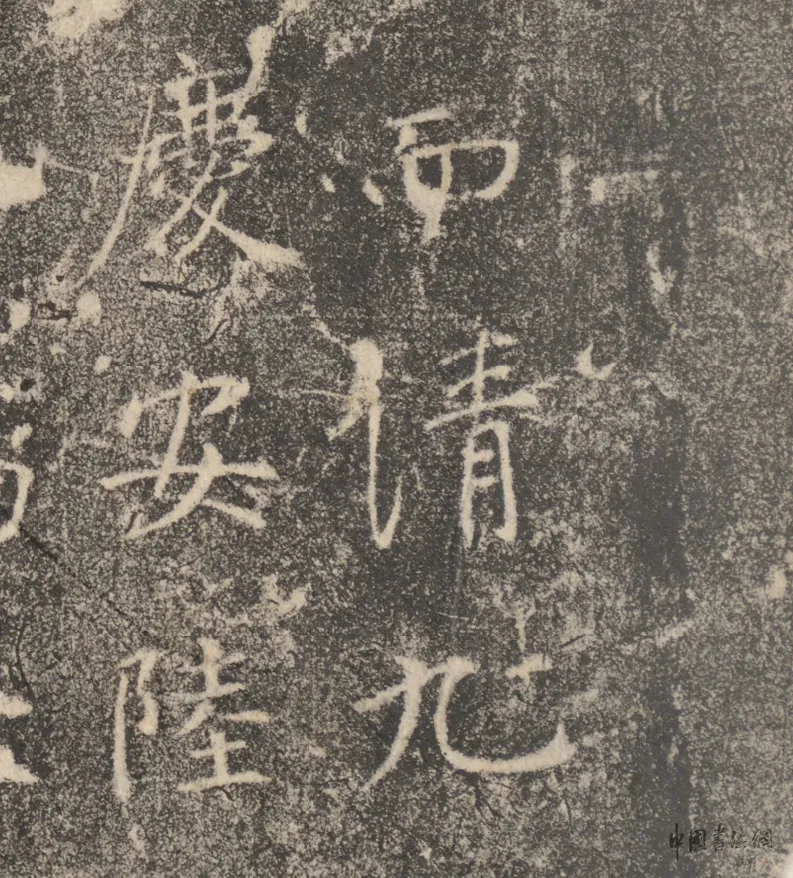 請九
慶安陸
中國書法網